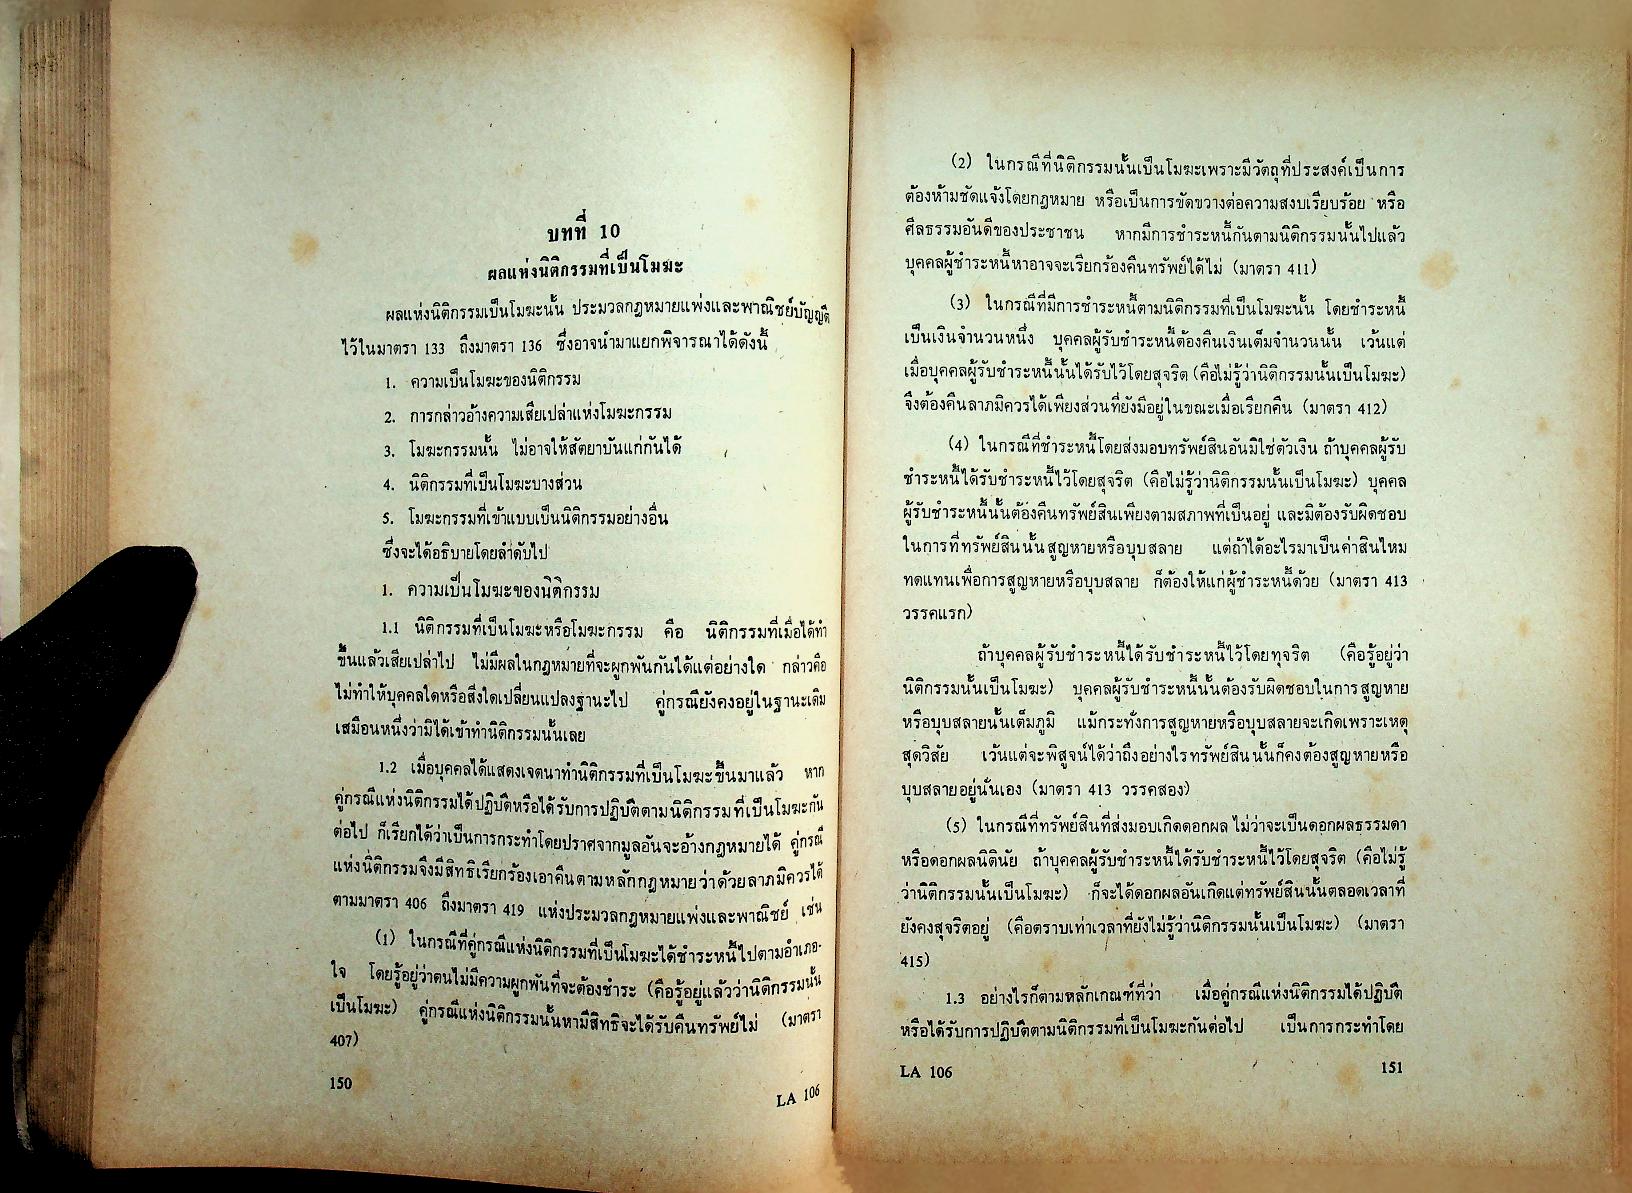 บทที่ 10
ผลแห่งนิติกรรมที่เป็นโมฆะ
ผลแห่งนิติกรรมเป็นโมฆะนั้น ประมวลกฎหมายแพ่งและพาณิชย์บัญญัติ
ไว้ในมาตรา 133 ถึงมาตรา 136 ซึ่งอาจนำมาแยกพิจารณาได้ดังนี้
1. ความเป็นโมฆะของนิติกรรม
2. การกล่าวอ้างความเสียเปล่าแห่งโมฆะกรรม
3. โมฆะกรรมนั้น ไม่อาจให้สัตยาบันแก่กันได้
4. นิติกรรมที่เป็นโมฆะบางส่วน
5. โมฆะกรรมที่เข้าแบบเป็นนิติกรรมอย่างอื่น
ซึ่งจะได้อธิบายโดยลำดับไป
1. ความเป็นโมฆะของนิติกรรม
1.1 นิติกรรมที่เป็นโมฆะหรือโมฆะกรรม คือ นิติกรรมที่เมื่อได้ทำ
ขึ้นแล้วเสียเปล่าไป ไม่มีผลในกฎหมายที่จะผูกพันกันได้แต่อย่างใด กล่าวคือ
ไม่ทำให้บุคคลใดหรือสิ่งใดเปลี่ยนแปลงฐานะไป คู่กรณียังคงอยู่ในฐานะเดิม
เสมือนหนึ่งว่ามิได้เข้าทำนิติกรรมนั้นเลย
1.2 เมื่อบุคคลได้แสดงเจตนาทำนิติกรรมที่เป็นโมฆะขึ้นมาแล้ว หาก
คู่กรณีแห่งนิติกรรมได้ปฏิบัติหรือได้รับการปฏิบัติตามนิติกรรมที่เป็นโมฆะกัน
ต่อไป ก็เรียกได้ว่าเป็นการกระทำโดยปราศจากมูลอันจะอ้างกฎหมายได้ คู่กรณี
แห่งนิติกรรมจึงมีสิทธิเรียกร้องเอาคืนตามหลักกฎหมายว่าด้วยลาภมิควรได้
ตามมาตรา 406 ถึงมาตรา 419 แห่งประมวลกฎหมายแพ่งและพาณิชย์ เช่น
(1) ในกรณีที่คู่กรณีแห่งนิติกรรมที่เป็นโมฆะได้ชำระหนี้ไปตามอำเภอ-
ใจ โดยรู้อยู่ว่าตนไม่มีความผูกพันที่จะต้องชำระ (คือรู้อยู่แล้วว่านิติกรรมนั้น
เป็นโมฆะ) คู่กรณีแห่งนิติกรรมนั้นหามีสิทธิจะได้รับคืนทรัพย์ไม่ (มาตรา
407)
150
LA 106
(2) ในกรณีที่นิติกรรมนั้นเป็นโมฆะเพราะมีวัตถุที่ประสงค์เป็นการ
ต้องห้ามชัดแจ้งโดยกฎหมาย หรือเป็นการขัดขวางต่อความสงบเรียบร้อย หรือ
ศีลธรรมอันดีของประชาชน หากมีการชำระหนี้กันตามนิติกรรมนั้นไปแล้ว
บุคคลผู้ชำระหนี้หาอาจจะเรียกร้องคืนทรัพย์ได้ไม่ (มาตรา 411)
(3) ในกรณีที่มีการชำระหนี้ตามนิติกรรมที่เป็นโมฆะนั้น โดยชำระหนี้
เป็นเงินจำนวนหนึ่ง บุคคลผู้รับชำระหนี้ต้องคืนเงินเต็มจำนวนนั้น เว้นแต่
เมื่อบุคคลผู้รับชำระหนี้นั้นได้รับไว้โดยสุจริต (คือไม่รู้ว่านิติกรรมนั้นเป็นโมฆะ)
จึงต้องคืนลาภมิควรได้เพียงส่วนที่ยังมีอยู่ในขณะเมื่อเรียกคืน (มาตรา 412)
(4) ในกรณีที่ชำระหนี้โดยส่งมอบทรัพย์สินอันมิใช่ตัวเงิน ถ้าบุคคลผู้รับ
ชำระหนี้ได้รับชำระหนี้ไว้โดยสุจริต (คือไม่รู้ว่านิติกรรมนั้นเป็นโมฆะ) บุคคล
ผู้รับชำระหนี้นั้นต้องคืนทรัพย์สินเพียงตามสภาพที่เป็นอยู่ และมิต้องรับผิดชอบ
ในการที่ทรัพย์สินนั้นสูญหายหรือบุบสลาย แต่ถ้าได้อะไรมาเป็นค่าสินไหม
ทดแทนเพื่อการสูญหายหรือบุบสลาย ก็ต้องให้แก่ผู้ชำระหนี้ด้วย (มาตรา 413
วรรคแรก)
ถ้าบุคคลผู้รับชำระหนี้ได้รับชำระหนี้ไว้โดยทุจริต (คือรู้อยู่ว่า
นิติกรรมนั้นเป็นโมฆะ) บุคคลผู้รับชำระหนี้นั้นต้องรับผิดชอบในการสูญหาย
หรือบุบสลายนั้นเต็มภูมิ แม้กระทั่งการสูญหายหรือบุบสลายจะเกิดเพราะเหตุ
สุดวิสัย เว้นแต่จะพิสูจน์ได้ว่าถึงอย่างไรทรัพย์สินนั้นก็คงต้องสูญหายหรือ
บุบสลายอยู่นั่นเอง (มาตรา 413 วรรคสอง)
(5) ในกรณีที่ทรัพย์สินที่ส่งมอบเกิดดอกผล ไม่ว่าจะเป็นดอกผลธรรมดา
หรือดอกผลนิตินัย ถ้าบุคคลผู้รับชำระหนี้ได้รับชำระหนี้ไว้โดยสุจริต (คือไม่รู้
ว่านิติกรรมนั้นเป็นโมฆะ) ก็จะได้ดอกผลอันเกิดแต่ทรัพย์สินนั้นตลอดเวลาที่
ยังคงสุจริตอยู่ (คือตราบเท่าเวลาที่ยังไม่รู้ว่านิติกรรมนั้นเป็นโมฆะ) (มาตรา
415)
1.3 อย่างไรก็ตามหลักเกณฑ์ที่ว่า เมื่อคู่กรณีแห่งนิติกรรมได้ปฏิบัติ
หรือได้รับการปฏิบัติตามนิติกรรมที่เป็นโมฆะกันต่อไป เป็นการกระทำโดย
LA 106
151